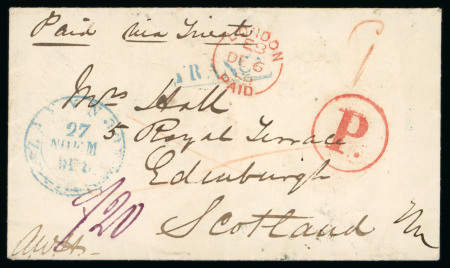 Paid via Trieste
LONDON
EB
DE 6
PAID
FRANCA
Mrs Hall
5 Royal Terrace
Edinburgh
Scotland
27
P.
1/20